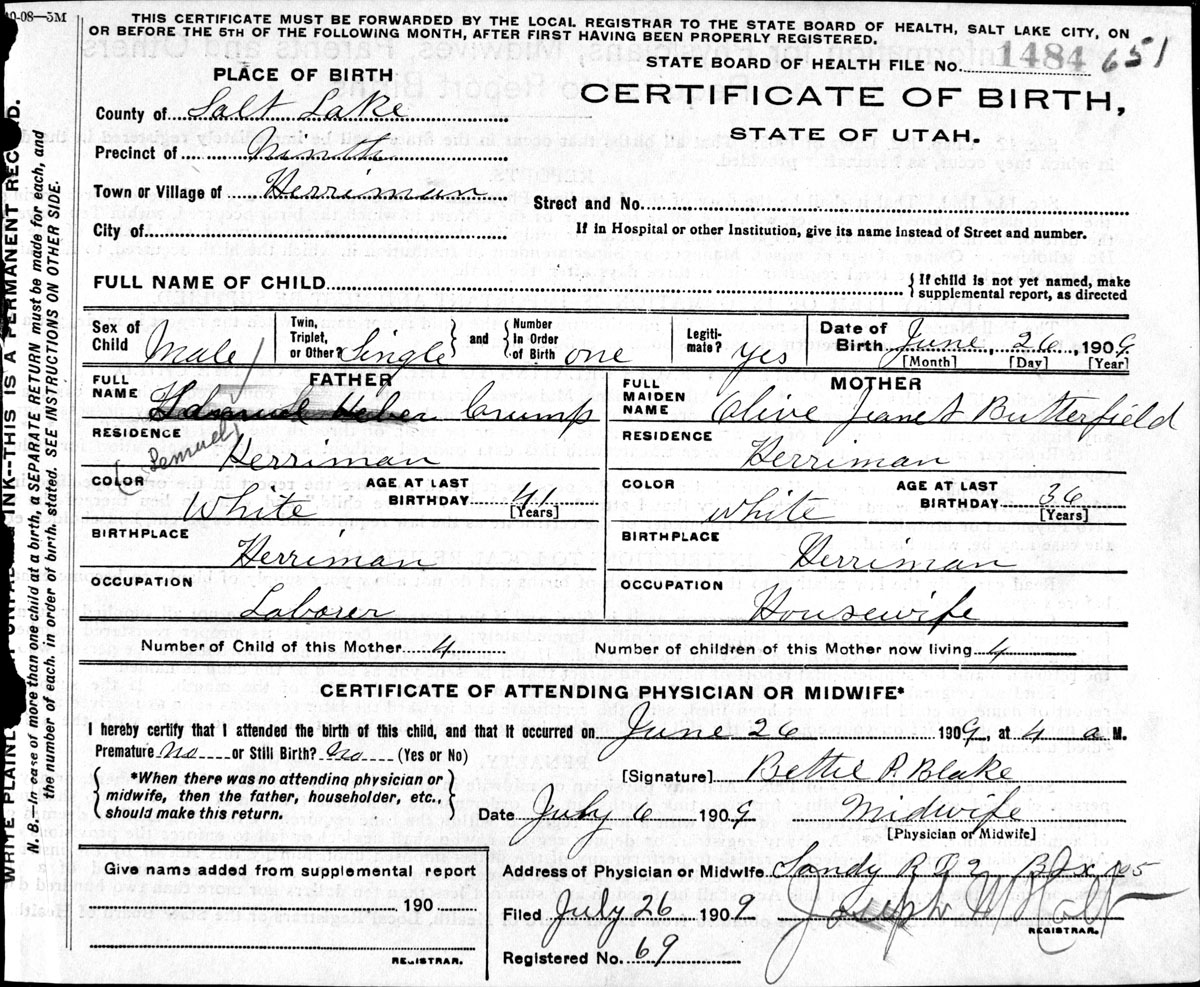 10-08—5M
THIS CERTIFICATE MUST BE FORWARDED BY THE LOCAL REGISTRAR TO THE STATE BOARD OF HEALTH, SALT LAKE CITY, ON
OR BEFORE THE 5TH OF THE FOLLOWING MONTH, AFTER FIRST HAVING BEEN PROPERLY REGISTERED.
STATE BOARD OF HEALTH FILE No. 1484 651
PLACE OF BIRTH
CERTIFICATE OF BIRTH,
STATE OF UTAH.
County of Salt Lake
Precinct of Ninth
Town or Village of Herriman
Street and No.
City of
If in Hospital or other Institution, give its name instead of Street and number.
FULL NAME OF CHILD { If child is not yet named, make supplemental report, as directed
Sex of Child Male
Twin, Triplet, or Other Single } and { Number In Order of Birth one
Legiti-mate? yes
Date of Birth June, 26, 1909
[Month] [Day] [Year]
FATHER
FULL NAME Crump
Lemuel
RESIDENCE Herriman
COLOR White
AGE AT LAST BIRTHDAY 41
[Years]
BIRTHPLACE Herriman
OCCUPATION Laborer
MOTHER
FULL MAIDEN NAME Olive Jeanet Butterfield
RESIDENCE Herriman
COLOR White
AGE AT LAST BIRTHDAY 36
[Years]
BIRTHPLACE Herriman
OCCUPATION Housewife
Number of Child of this Mother 4
Number of children of this Mother now living 4
CERTIFICATE OF ATTENDING PHYSICIAN OR MIDWIFE*
I hereby certify that I attended the birth of this child, and that it occurred on June 26 1909, at 4 a M.
Premature No or Still Birth? No (Yes or No)
{ *When there was no attending physician or midwife, then the father, householder, etc., should make this return. }
[Signature] Bettie P. Blake
Date July 6 1909 Midwife
[Physician or Midwife]
Give name added from supplemental report
190
REGISTRAR.
Address of Physician or Midwife Sandy R D 2 Box
Filed July 26 1909 Joseph M
REGISTRAR.
Registered No. 69
N. B.—In case of more than one child at a birth, a SEPARATE RETURN must be made for each, and
the number of each, in order of birth, stated. SEE INSTRUCTIONS ON OTHER SIDE.
WRITE PLAINLY INK--THIS IS A PERMANENT RECORD.